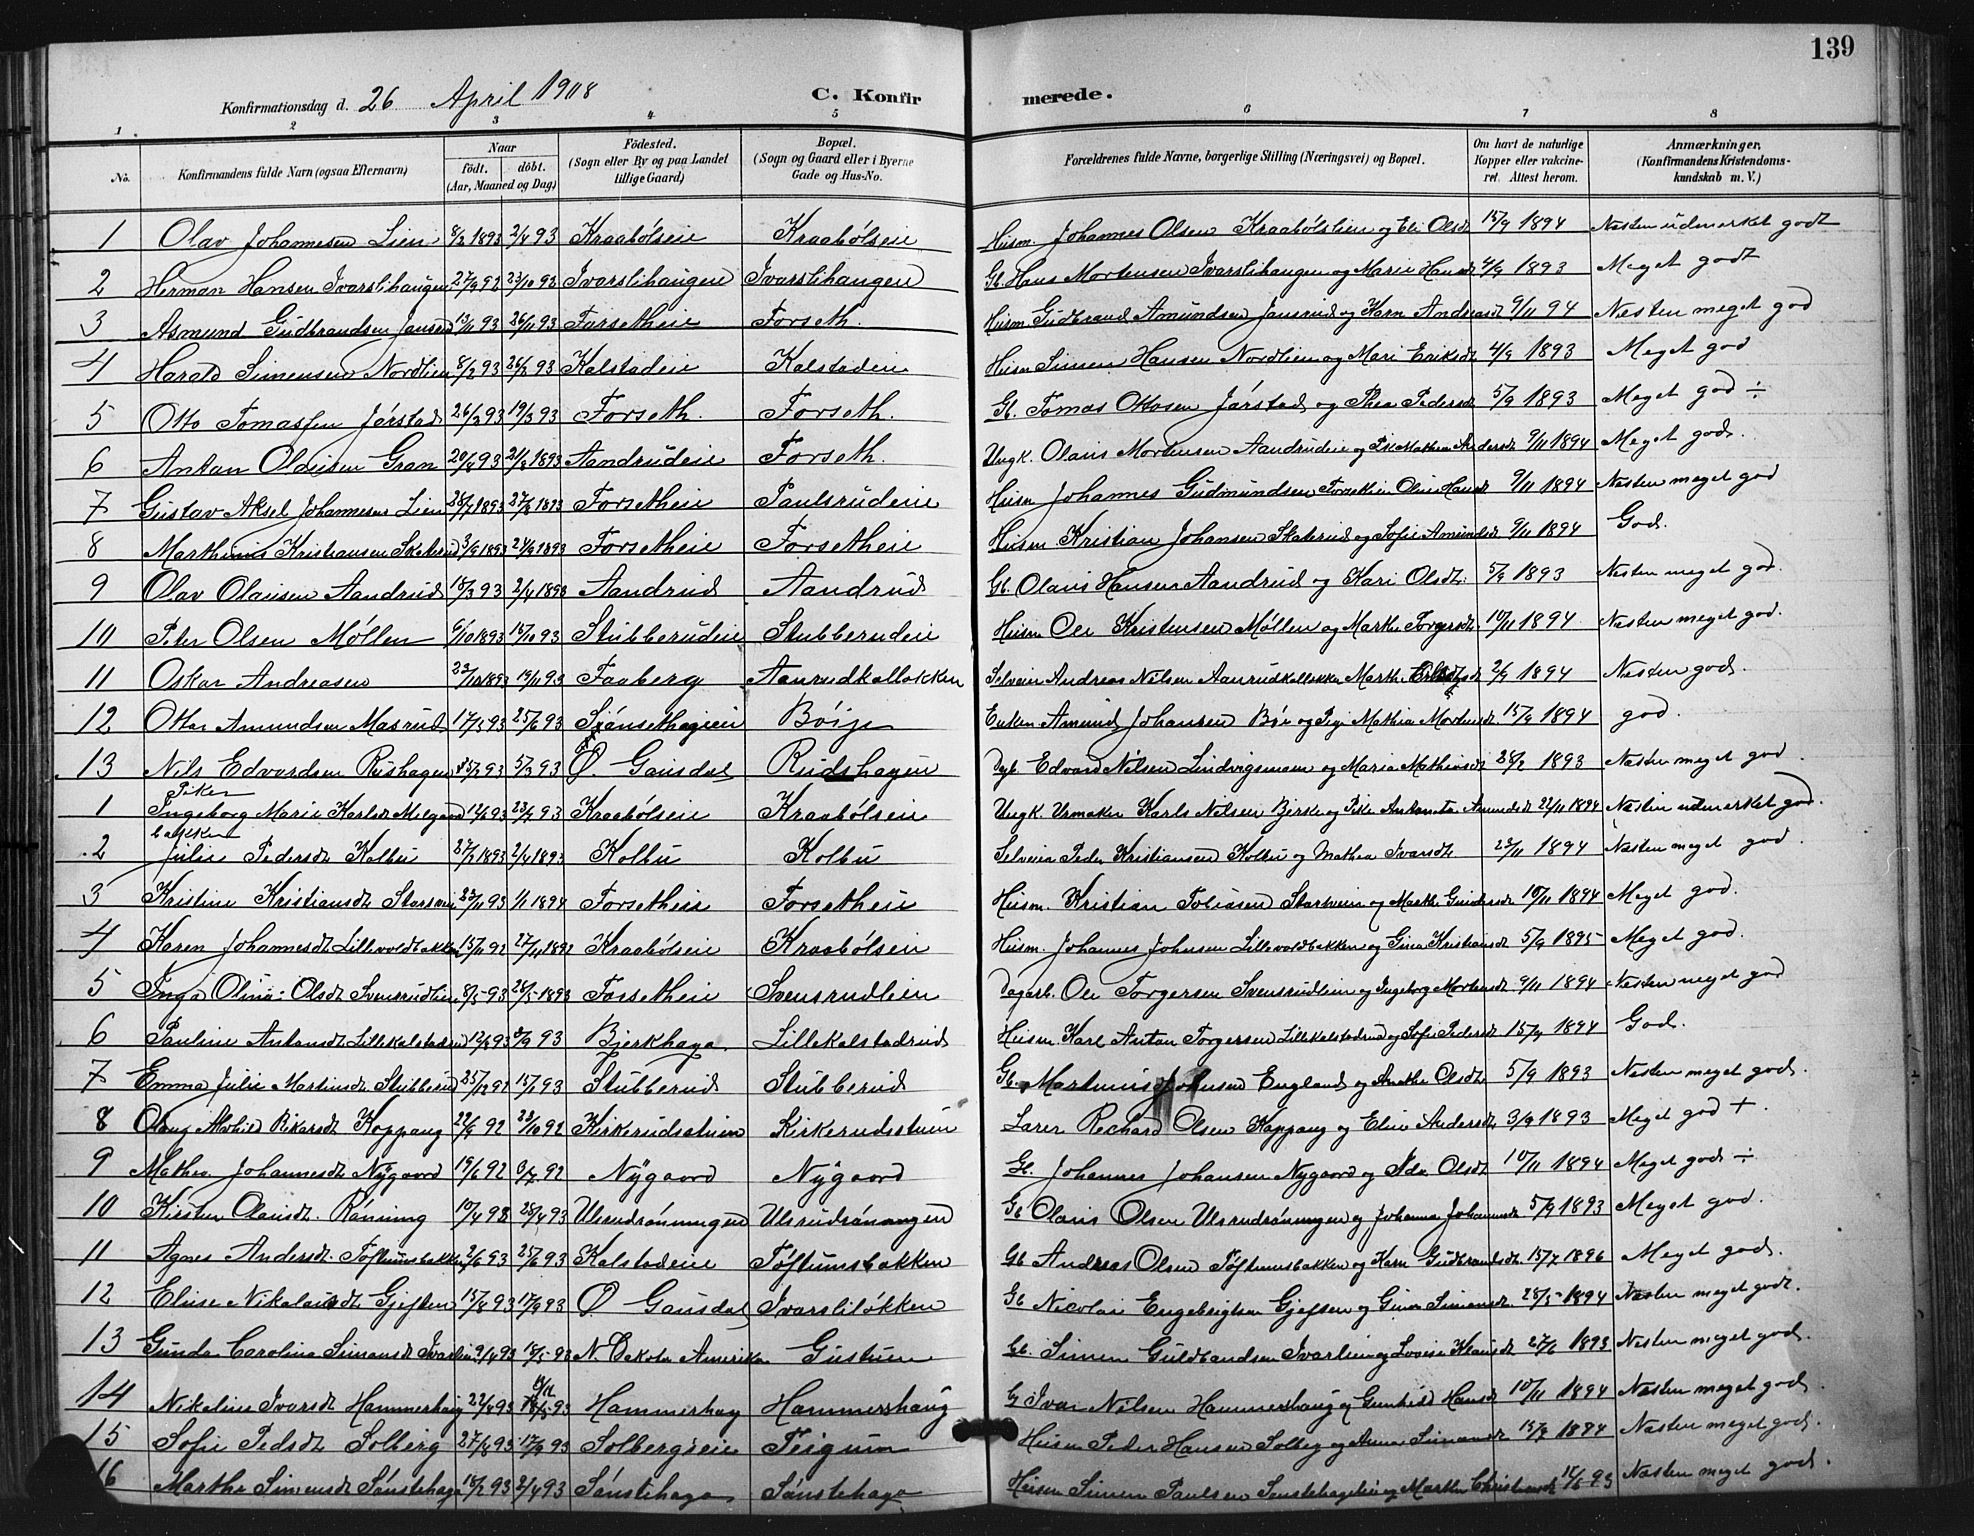 139
Konfirmationsdag d. 26 April 1908 C. Konfirmerede.
1 2 3 4 5 6 7 8
No. Konfirmandens fulde Navn (ogsaa Efternavn) Naar födt. döbt. (Aar, Maaned og Dag) Födested. (Sogn eller By og paa Landet tillige Gaard) Bopæl. (Sogn og Gaard eller i Byerne Gade og Hus-No. Forældrenes fulde Navne, borgerlige Stilling (Næringsvei) og Bopæl. Om havt de naturlige Kopper eller vakcineret. Attest herom. Anmærkninger. (Konfirmandens Kristendomskundskab m. V.)
1 Olav Johannesen Lien 8/3 1893 2/4 93 Kraabölseie Kraabölseie Husm. Johannes Olsen Kraabölslien og Eli Olsdt 15/9 1894 Næsten udmerket godt
2 Herman Hansen Ivarslihaugen 27/9 92 23/10 93 Ivarslihaugen Ivarslihaugen Gb. Hans Mortensen Ivarslihaugen og Marie Hansdt 4/9 1893 Meget godt
3 Asmund Gudbrandsen Jansrud 13/11 93 26/11 93 Forsetheie Forseth. Husm Gudbrand Amundsen Jansrud og Karn Andreasdt 9/11 94 Næsten meget god
4 Harald Simensen Nordlien 8/2 93 26/2 93 Kalstadeie Kalstadeie Husm Simen Hansen Nordlien og Mari Eriksdt 4/9 1893 Meget god
5 Otto Tomassen Jörstad 26/2 93 19/3 93 Forseth. Forseth. Gb. Tomas Ottosen Jörstad og Thea Pedersdt 5/9 1893 Meget god ÷
6 Antan Olausen Gran 20/4 93 21/5 1893 Aandrudeie Forseth. Ungk. Olaus Mortensen Aandrudeie og Mathea Andersdt 9/11 1894 Meget god.
7 Gustav Aksel Johannesen Lien 28/7 1893 27/8 1893 Forsetheie Paulsrudeie Husm Johannes Gudmundsen Forsethlien Oline Hansdt 9/11 1894 Næsten meget god
8 Marthinus Kristiansen Skaterud 3/9 1893 24/9 1893 Forsetheie Forsetheie Husm Kristian Johansen Skaterud og Sofie Amundsdt 9/11 1894 God.
9 Olav Olausen Aandrud 18/3 93 2/4 1893 Aandrud Aandrud Gb. Olaus Hansen Aandrud og Kari Olsdt. 5/9 1893 Næsten meget god.
10 Peter Olsen Möllen 6/10 1893 15/10 93 Stubberudeie Stubberudeie Husm Ole Kristensen Möllen og Marthe Torgersdt. 10/11 1894 Næsten meget god.
11 Oskar Andreasen 23/10 1893 19/11 93 Faaberg Aanrudkallökken Selveier Andreas Nilsen Aanrudkallekken Marth. 2/9 1894 Næsten god.
12 Ottar Amundsen Masrud 17/5 93 25/6 93 Böije Amund Johansen Böe og Mathia Mortensdt 15/9 1894 god.
13 Nils Edvardsen Rushagen 5/2 93 5/3 93 Ö. Gausdal Rudshagen Edvard Nilsen Lindvigsmoen og Maria Mathiasdt 28/2 1893 Næsten meget god
Piker
1 Ingeborg Marie Karlsdt Melgaard bakken 12/6 93 23/7 93 Kraabölseie Kraabölseie Ungk. Urmaker Karls Nilsen Bjerke og Pike Antonette Amundsdt 22/11 1894 Næsten udmerket god.
2 Julie Pedersdt Kolbu 27/2 1893 2/4 1893 Kolbu Kolbu Selveier Peder Kristiansen Kolbu og Mathea Ivarsdt 23/11 1894 Næsten meget god.
3 Kristine Kristiansdt 23/11 93 1/1 1894 Forsetheie Forsetheie Husm. Kristian Tobiasen og Marthe 10/11 1894 Meget god.
4 Karen Johannesdt Lillevoldbakken 15/11 92 27/11 1892 Kraabölseie Kraabölseie Husm. Johannes Johnsen Lillevoldbakken og Gina Kristiansdt 5/9 1895 Meget god.
5 Inga Olina Olsdt Svensrudlien 8/5 93 28/5 1893 Forsetheie Svensrudlien Dagarb. Ole Torgersen Svensrudlien og Ingeborg Mortensdt 9/11 1894 Næsten meget god
6 Pauline Antonsdt Lillekalstadrud 12/8 93 3/9 93 Bjerkhaga Lillekalstadrud Husm. Karl Antan Torgersen Lillekalstadrud og Sofie Pedersdt 15/9 1894 God.
7 Emma Julie Martinusdt Stubberud 25/12 92 15/1 93 Stubberud Stubberud Gb. Martinus Johnsen Engeland og Anethe Olsdt 5/9 1893 Næsten meget god.
8 Olaug Alvhild Rikarsdt Koppang 22/6 92 23/10 92 Kirkerudsstuen Kirkerudsstuen Lærer Rechard Olsen Koppang og Eline Andersdt 3/9 1893 Meget god +
9 Mathea Johannesdt Nygaard 19/6 92 3/7 92 Nygaard Nygaard Gb. Johannes Johansen Nygaard og Ida Olsdt 10/11 1894 Meget god ÷
10 Kirsten Olausdt. Rönning 10/4 93 28/4 93 Ulsrudrönningen Ulsrudrönningen Gb Olaus Olsen Ulsrudrönningen og Johanna Johannesdt. 5/9 1893 Meget god.
11 Agnes Andersdt. Töftumsbakken 2/6 93 25/6 93 Kalstadeie Töftumsbakken Gb Andreas Olsen Töftumsbakken og Karn Gudbrandsdt. 15/7 1896 Meget god.
12 Elise Nikolaisdt Gjeften 15/8 93 17/9 93 Ö Gausdal Ivarslilökken Gb Nicolai Engebregtsen Gjeften og Gina Simensdt. 28/5 1894 Næsten meget godt.
13 Gunda Carolina Simensdt Ivarslien 9/4 93 18/5 93 N. Dakota Amerika Gustuen Gb. Simen Guldbrandsen Ivarlien og Lovise Klausdt 27/6 1893 Næsten meget god.
14 Nikoline Ivarsdt Hammershaug 22/4 93 93 Hammerhaug Hammershaug Gb Ivar Nilsen Hammershaug og Gunhild Hansdt 10/11 1894 Næsten meget god.
15 Sofie Pedsdt Solberg 27/8 93 17/9 93 Solbergseie Teigum Husm Peder Hansen Solberg og Anne Simensdt 15/9 1894 Næsten meget god.
16 Marthe Simensdt Sönstehage 18/2 93 2/4 93 Sönstehaga Sönstehaga Husm Simen Paulsen Sönstehagen og Marthe Christiansdt 93 Næsten meget god.